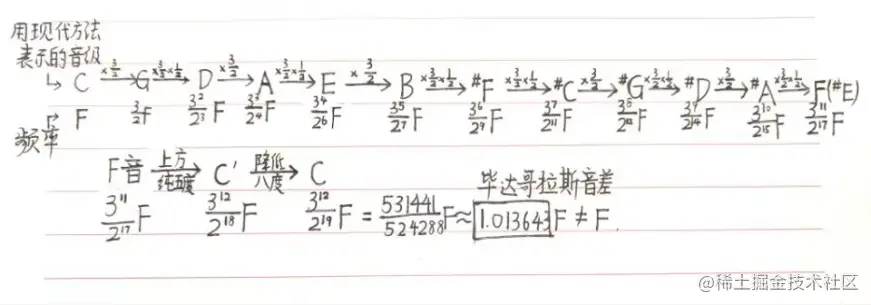 用现代方法
表示的音级
↳ C ×3/2→ G ×3/2×1/2→ D ×3/2→ A ×3/2×1/2→ E ×3/2→ B ×3/2×1/2→ #F ×3/2×1/2→ #C ×3/2→ #G ×3/2×1/2→ #D ×3/2→ #A ×3/2×1/2→ F(#E)
F 3/2f 3²/2³F 3³/2⁴F 3⁴/2⁶ 3⁵/2⁷F 3⁶/2⁹F 3⁷/2¹¹F 3⁸/2¹²F 3⁹/2¹⁴F 3¹⁰/2¹⁵F 3¹¹/2¹⁷F
频率
F音 上方纯五度→ C' 降低八度→ C 毕达哥拉斯音差
3¹¹/2¹⁷F 3¹²/2¹⁸F 3¹²/2¹⁹F = 531441/524288F ≈ 1.013643F ≠ F.
@稀土掘金技术社区